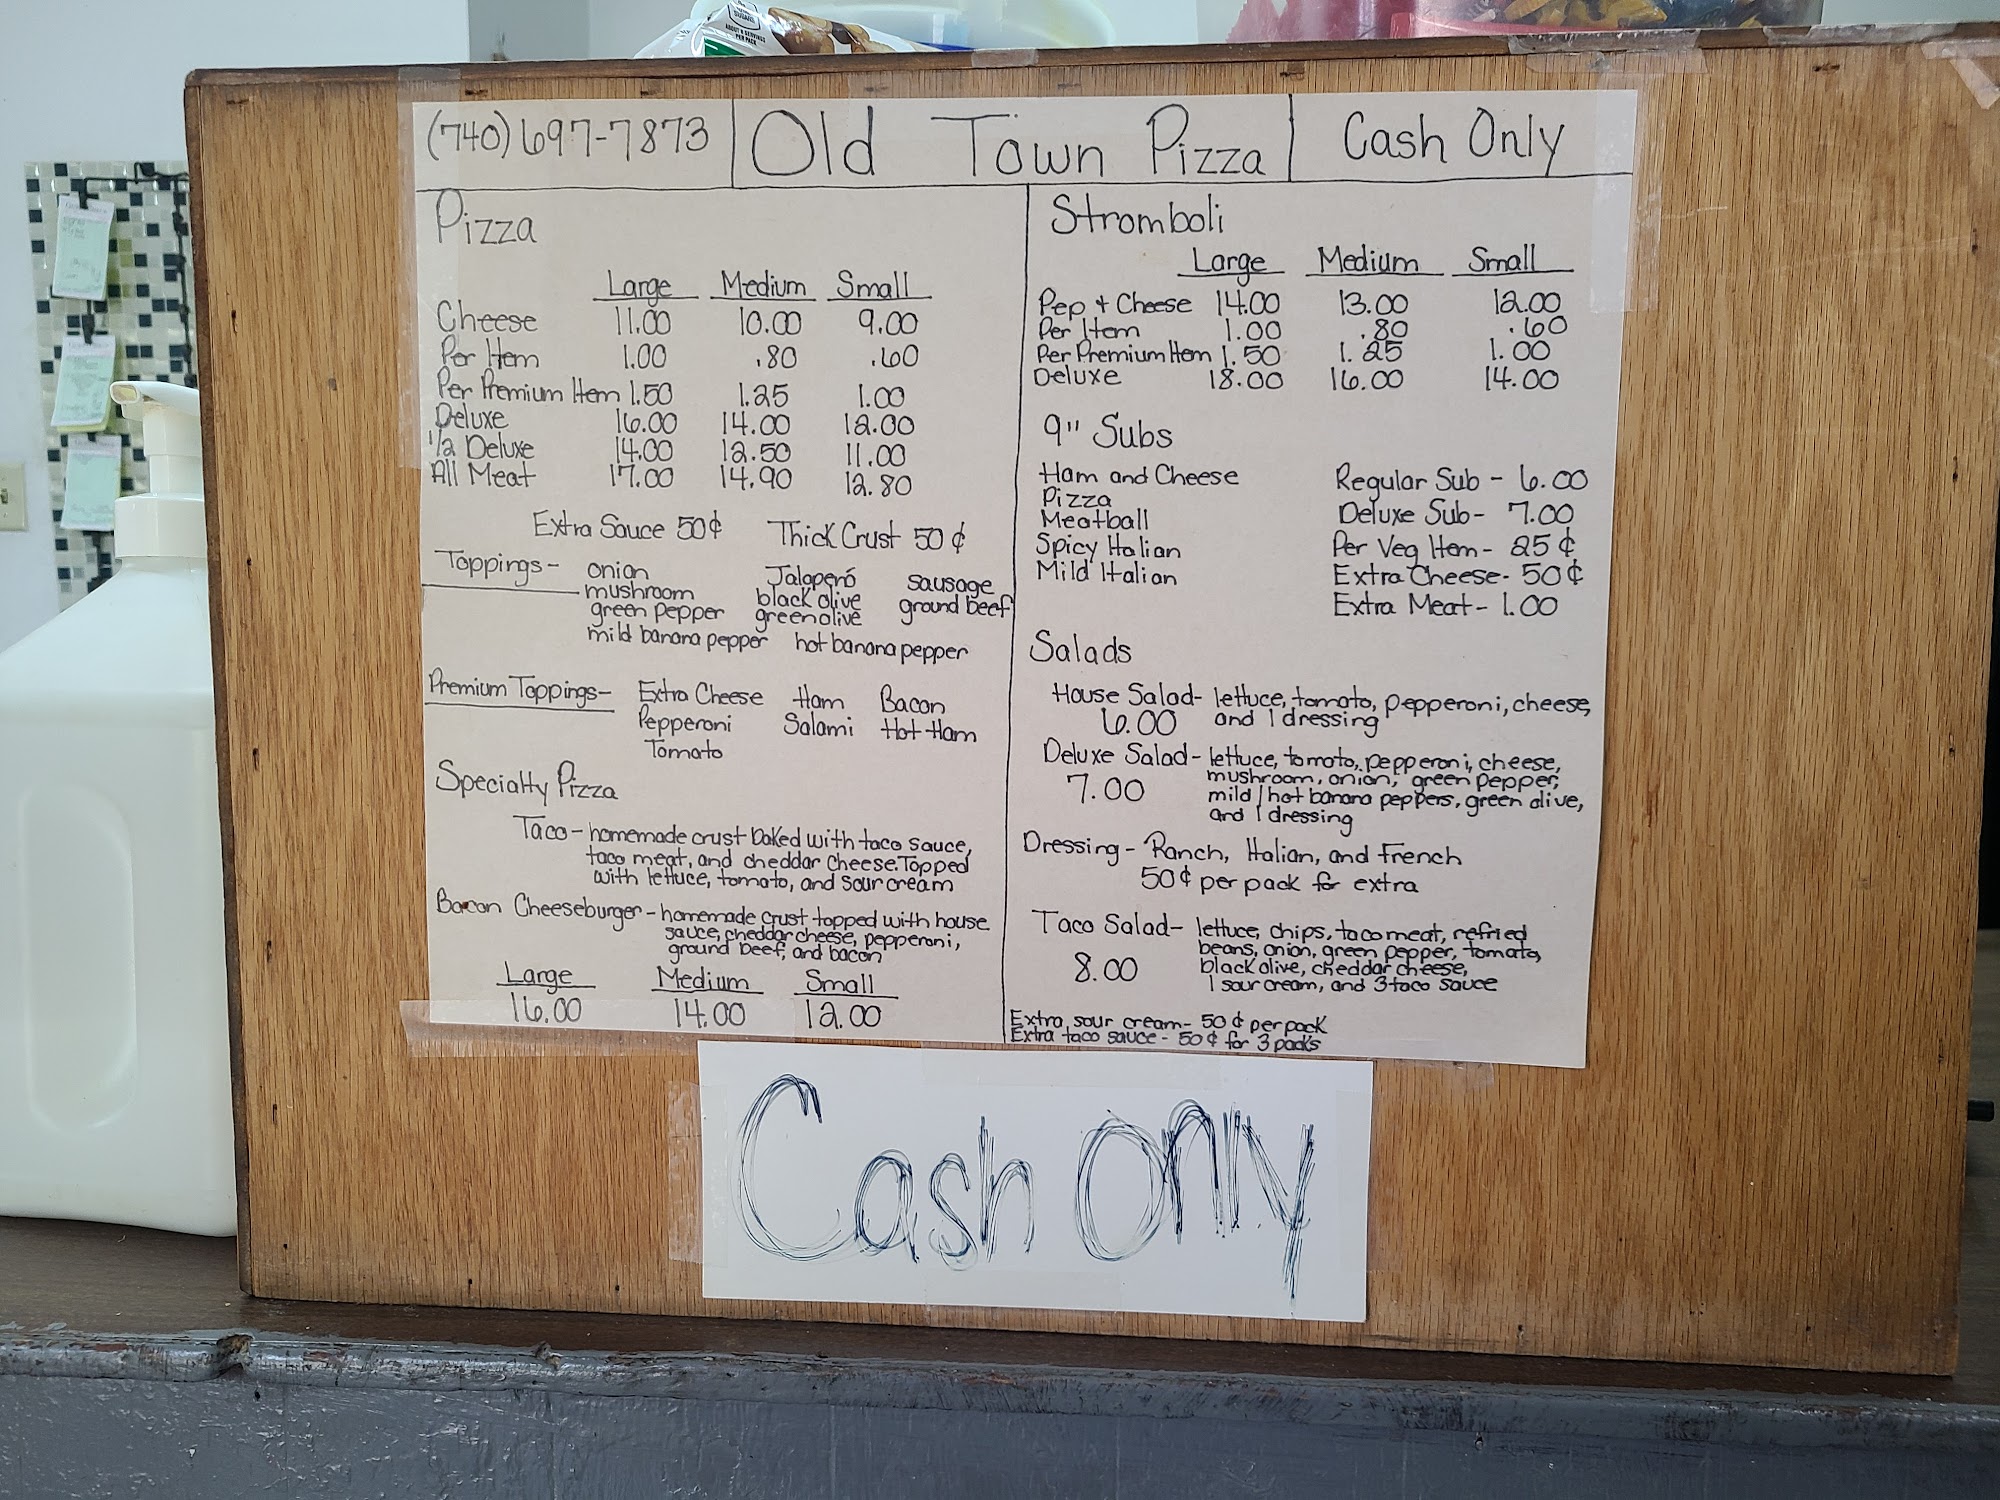 (740) 697-7873
Old Town Pizza
Cash Only
Pizza
Large Medium Small
Cheese 11.00 10.00 9.00
Per Item 1.00 .80 .60
Per Premium Item 1.50 1.25 1.00
Deluxe 16.00 14.00 12.00
1/2 Deluxe 14.00 12.50 11.00
All Meat 17.00 14.90 12.80
Extra Sauce 50¢ Thick Crust 50¢
Toppings- onion Jalaperó sausage
mushroom black olive ground beef
green pepper green olive
mild banana pepper hot banana pepper
Premium Toppings- Extra Cheese Ham Bacon
Pepperoni Salami Hot Ham
Tomato
Specialty Pizza
Taco- homemade crust baked with taco sauce,
taco meat, and cheddar cheese. Topped
with lettuce, tomato, and sour cream
Bacon Cheeseburger- homemade crust topped with house
sauce, cheddar cheese, pepperoni,
ground beef, and bacon
Large Medium Small
16.00 14.00 12.00
Stromboli
Large Medium Small
Pep + Cheese 14.00 13.00 12.00
Per Item 1.00 .80 .60
Per Premium Item 1.50 1.25 1.00
Deluxe 18.00 16.00 14.00
9" Subs
Ham and Cheese
Pizza
Meatball
Spicy Italian
Mild Italian
Regular Sub - 6.00
Deluxe Sub- 7.00
Per Veg Item- 25¢
Extra Cheese- 50¢
Extra Meat- 1.00
Salads
House Salad- lettuce, tomato, pepperoni, cheese,
6.00 and 1 dressing
Deluxe Salad- lettuce, tomato, pepperoni, cheese,
7.00 mushroom, onion, green pepper,
mild/hot banana peppers, green olive,
and 1 dressing
Dressing- Ranch, Italian, and French
50¢ per pack for extra
Taco Salad- lettuce, chips, taco meat, refried
beans, onion, green pepper, tomato,
8.00 black olive, cheddar cheese,
1 sour cream, and 3 taco sauce
Extra sour cream- 50¢ per pack
Extra taco sauce- 50¢ for 3 packs
Cash Only